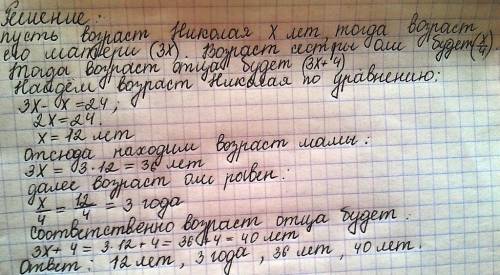 Решение:
пусть возраст Николая х лет, тогда возраст
его матери (3х). Возраст сестры Оли будет (х/4)
Тогда возраст отца будет (3х+4)
Найдём возраст Николая по уравнению:
3х - х = 24;
2х = 24.
х = 12 лет
Отсюда находим возраст мамы:
3х = 3·12 = 36 лет
далее возраст Оли равен:
х/4 = 12/4 = 3 года
Соответственно возраст отца будет:
3х + 4 = 3·12 + 4 = 36 + 4 = 40 лет
Ответ: 12 лет, 3 года, 36 лет, 40 лет.